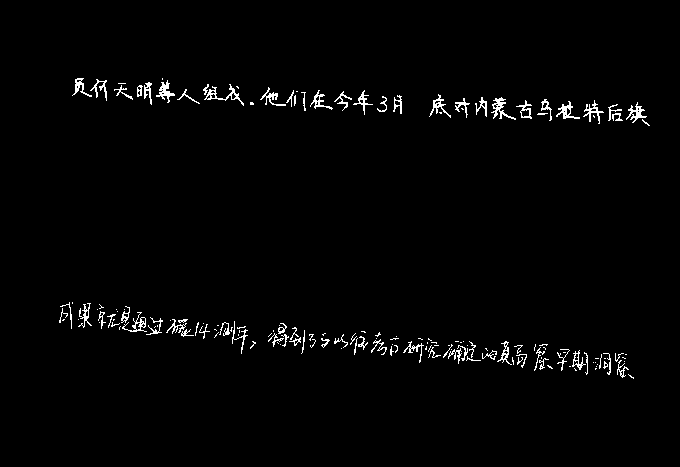 员何天明等人组成.他们在今年3月 底对内蒙古乌拉特后旗
成果就是通过碳14测年,得到了与以往考古研究确定的莫高窟早期洞窟